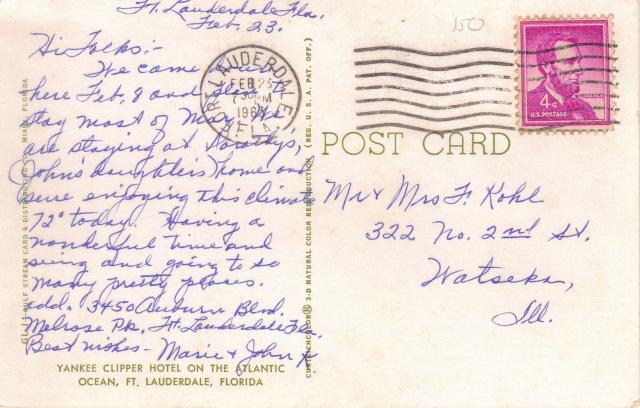 Ft. Lauderdale Fla.
Feb. 23.
Hi Folks:-
We came
here Feb. 8 and
stay most of
are staying at Dorothys,
John's daughters home and
sure enjoying this climate
72° today. Having a
wonderful time and
seeing and going to so
many pretty places.
add. 3450 Auburn Blvd.
Melrose Pk. Ft. Lauderdale Fla.
Best wishes - Marie + John K
YANKEE CLIPPER HOTEL ON THE ATLANTIC
OCEAN, FT. LAUDERDALE, FLORIDA
GULF STREAM CARD & DISTRIBUTING CO. MIAMI, FLORIDA
CURTEICHCOLOR ® 3-D NATURAL COLOR REPRODUCTION (REG. U.S.A. PAT. OFF.)
FORT LAUDERDALE
FEB 25
PM
FLA.
150
4¢
U.S. POSTAGE
POST CARD
Mr & Mrs F. Kohl
322 No. 2nd St.
Watseka,
Ill.